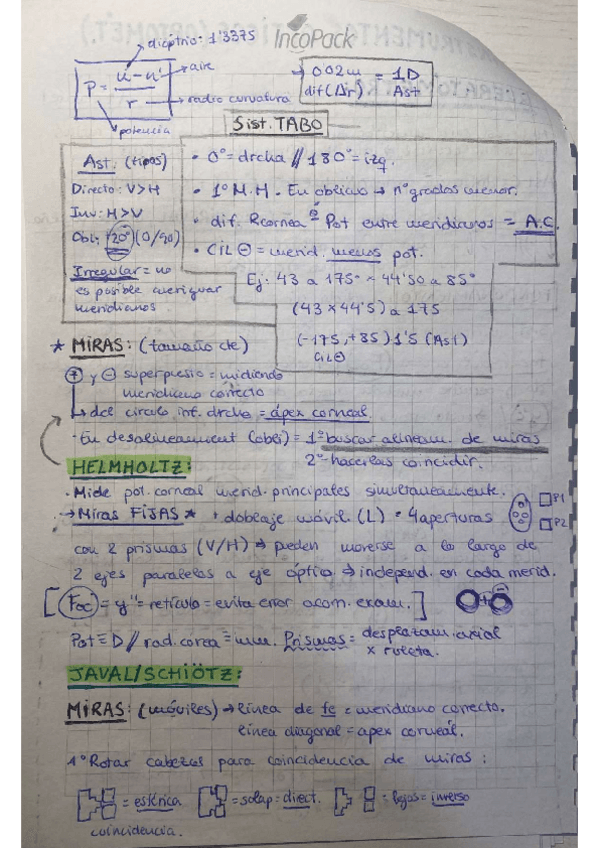 IncoPack
dióptrio - 1'3375
P = n - n' / r
aire
radio curvatura
potencia
→ 0'02 m = 1 D
dif (Δr) Ast
Sist. TABO
Ast. (tipos)
Directo: V>H
Inv: H>V
Obl: +20° (0/90)
Irregular = no
es posible averiguar
meridianos
• 0° = drcha // 180° = izq.
• 1° M.H. En oblicuo → nº grados menor.
• dif. Rcornea º Pot entre meridianos = A.C.
• CIL ⊖ = merid. menos pot.
Ej: 43 a 175° ~ 44'50 a 85°
(43 x 44'5) a 175
(-175, +85) 1'5 (Ast)
CIL⊖
* MIRAS: (tamaño de)
⊕ y ⊖ superpuesto = midiendo
meridiano correcto
↳ del circulo inf. drcho = ápex corneal
• En desalineament (oblei) = 1º buscar alineam. de miras
2º hacerlas coincidir.
HELMHOLTZ:
• Mide pot. corneal merid. principales simultaneamente.
→ Miras FIJAS * , doblaje móvil. (L) • 4 aperturas
P1
P2
con 2 prismas (V/H) → pueden moverse a lo largo de
2 ejes paralelos a eje óptico → independ. en cada merid.
[Foc = y'' = retículo = evita error acom. exam.]
Pot = D // rad. cornea = mm. Prismas = desplazam. axial
x ruleta.
JAVAL/SCHIÖTZ:
MIRAS: (móviles) → línea de fe = meridiano correcto.
línea diagonal = apex corneal.
1º Rotar cabezas para coincidencia de miras:
= esférica = solap = direct. = lejos = inverso
coincidencia.